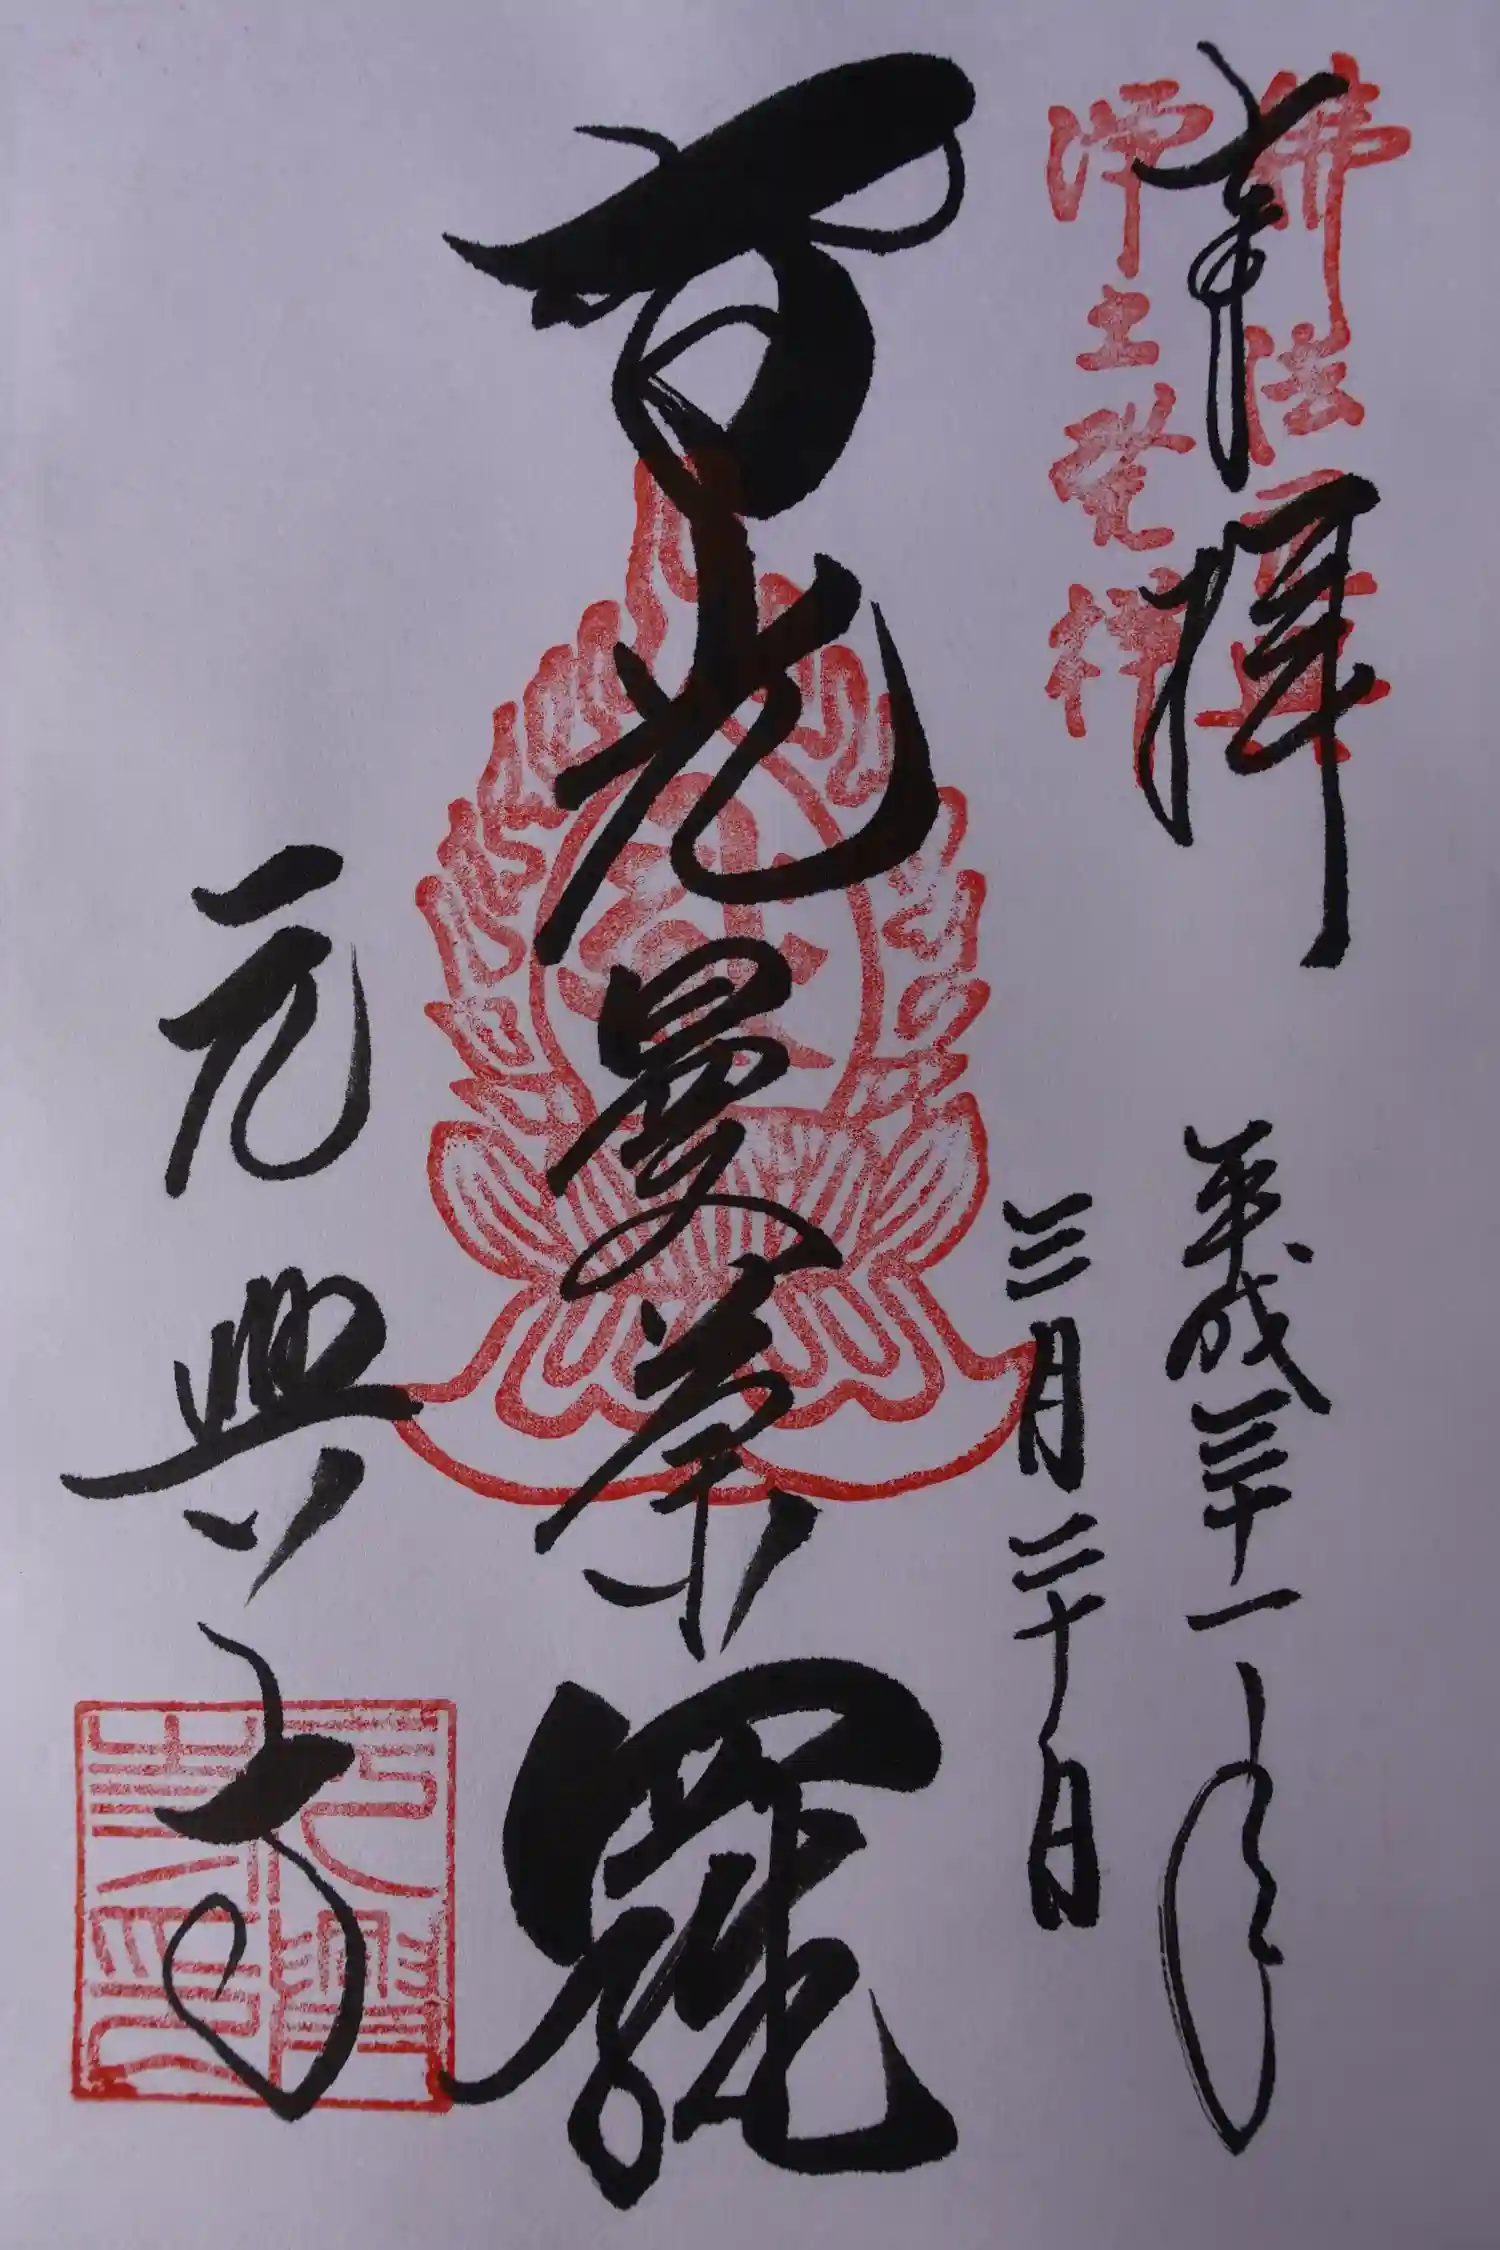 佛法元興
浄土發祥
奉拝
平成三十一年
三月二十日
智光曼荼羅
元興寺
元興寺印